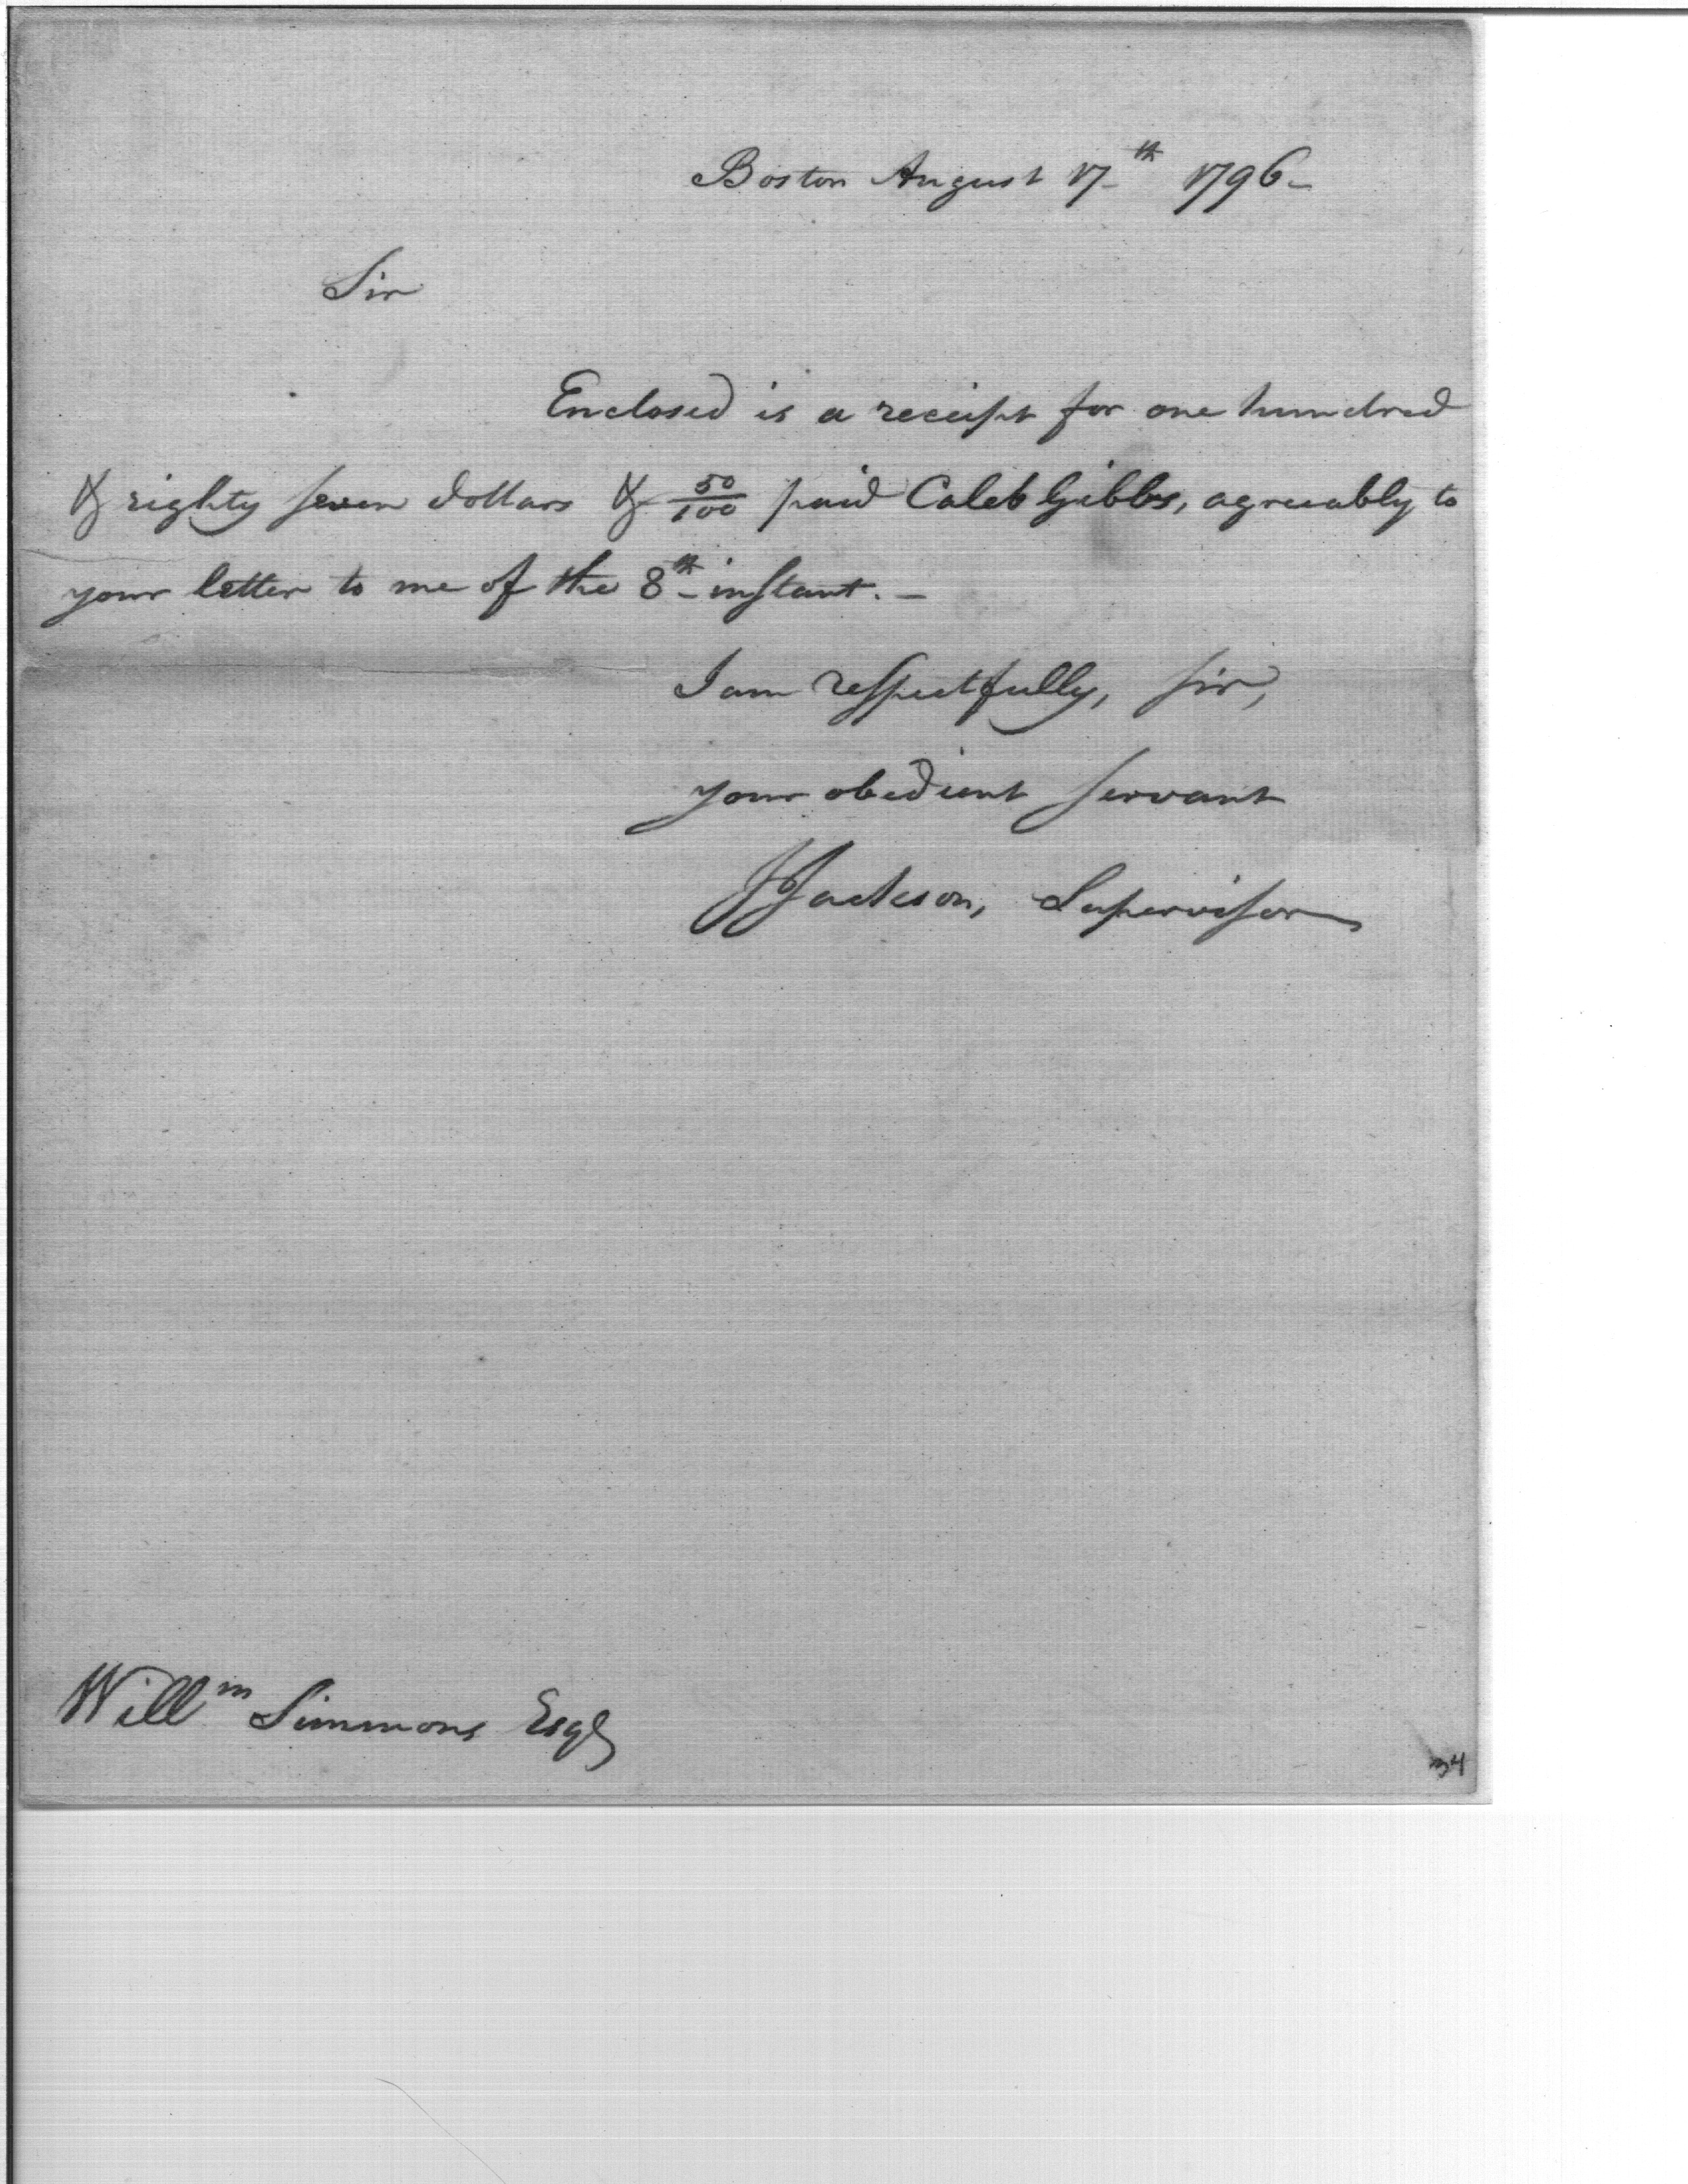 Boston August 17th 1796-
Sir
Enclosed is a receipt for one hundred
& eighty seven dollars & 50/100 paid Caleb Gibbs, agreeably to
your letter to me of the 8th instant. -
I am respectfully, sir,
your obedient servant
JJackson, Supervisor
Willm Simmons Esqr
34